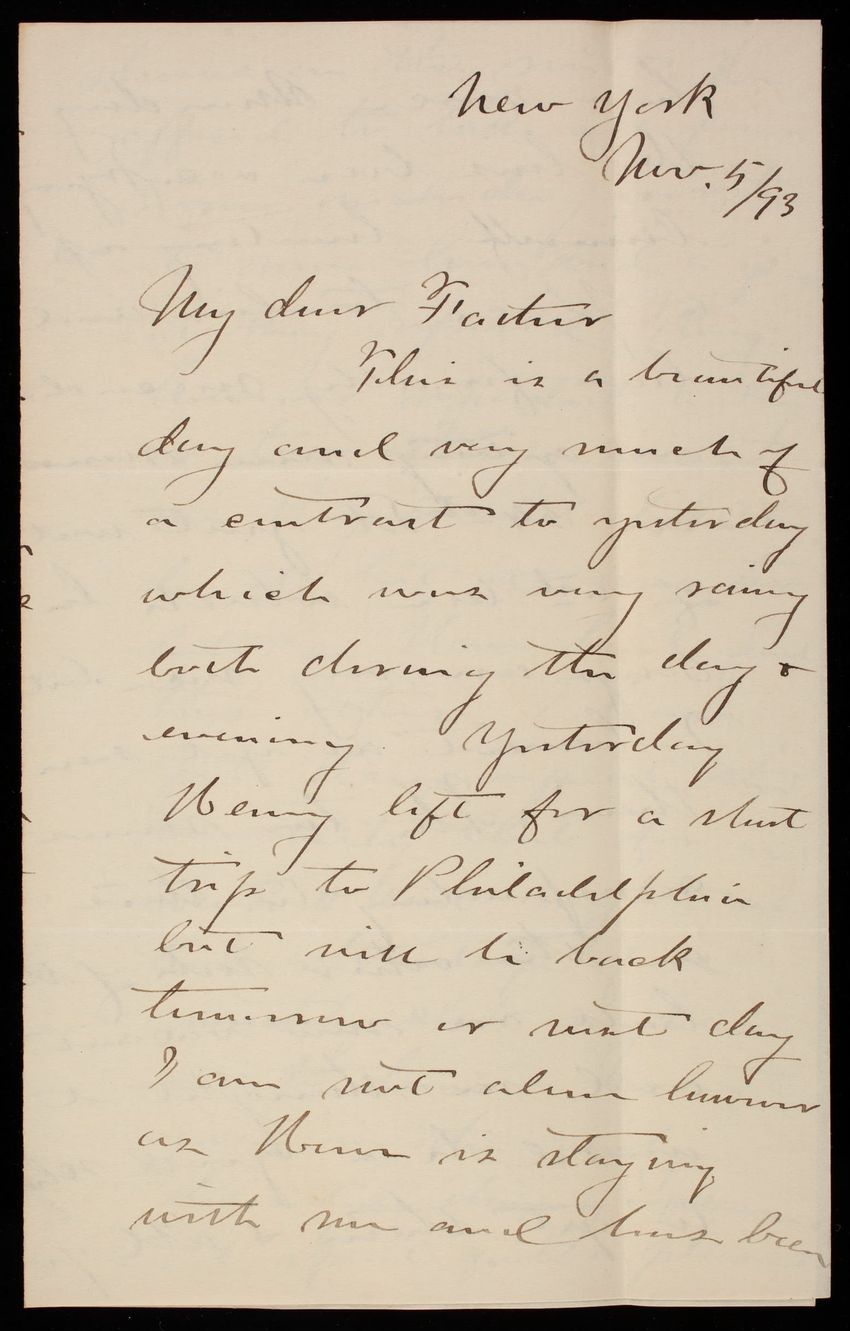 New York
Nov. 5/93
My dear Father
This is a beautiful
day and very much of
a contrast to yesterday
which was very rainy
both during the day &
evening. Yesterday
Henry left for a short
trip to Philadelphia
but will be back
tomorrow or next day
I am not alone however
as is staying
with me and has been